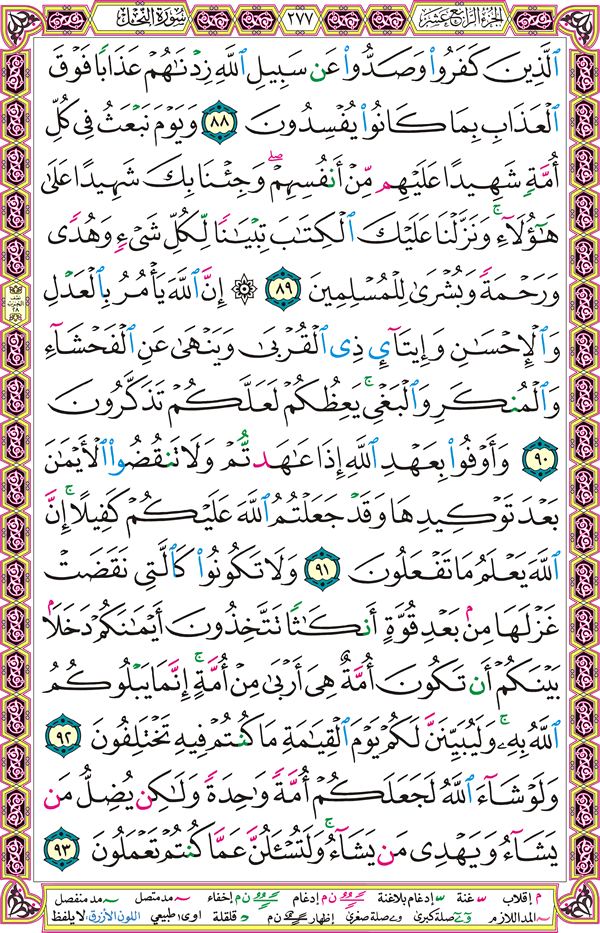 الجزء الرابع عشر ٢٧٧ سورة النحل
الَّذِينَ كَفَرُوا۟ وَصَدُّوا۟ عَن سَبِيلِ اللَّهِ زِدْنَاهُمْ عَذَابًا فَوْقَ
الْعَذَابِ بِمَا كَانُوا۟ يُفْسِدُونَ ٨٨ وَيَوْمَ نَبْعَثُ فِي كُلِّ
أُمَّةٍ شَهِيدًا عَلَيْهِم مِّنْ أَنفُسِهِمْ ۖ وَجِئْنَا بِكَ شَهِيدًا عَلَىٰ
هَـٰٓؤُلَآءِ ۚ وَنَزَّلْنَا عَلَيْكَ الْكِتَـٰبَ تِبْيَـٰنًا لِّكُلِّ شَىْءٍ وَهُدًى
وَرَحْمَةً وَبُشْرَىٰ لِلْمُسْلِمِينَ ٨٩ ۞ إِنَّ اللَّهَ يَأْمُرُ بِالْعَدْلِ
وَالْإِحْسَـٰنِ وَإِيتَآئِ ذِى الْقُرْبَىٰ وَيَنْهَىٰ عَنِ الْفَحْشَآءِ
وَالْمُنكَرِ وَالْبَغْىِ ۚ يَعِظُكُمْ لَعَلَّكُمْ تَذَكَّرُونَ
٩٠ وَأَوْفُوا۟ بِعَهْدِ اللَّهِ إِذَا عَـٰهَدتُّمْ وَلَا تَنقُضُوا۟ الْأَيْمَـٰنَ
بَعْدَ تَوْكِيدِهَا وَقَدْ جَعَلْتُمُ اللَّهَ عَلَيْكُمْ كَفِيلًا ۚ إِنَّ
اللَّهَ يَعْلَمُ مَا تَفْعَلُونَ ٩١ وَلَا تَكُونُوا۟ كَالَّتِى نَقَضَتْ
غَزْلَهَا مِنۢ بَعْدِ قُوَّةٍ أَنكَـٰثًا تَتَّخِذُونَ أَيْمَـٰنَكُمْ دَخَلًۢا
بَيْنَكُمْ أَن تَكُونَ أُمَّةٌ هِىَ أَرْبَىٰ مِنْ أُمَّةٍ ۚ إِنَّمَا يَبْلُوكُمُ
اللَّهُ بِهِۦ ۚ وَلَيُبَيِّنَنَّ لَكُمْ يَوْمَ الْقِيَـٰمَةِ مَا كُنتُمْ فِيهِ تَخْتَلِفُونَ ٩٢
وَلَوْ شَآءَ اللَّهُ لَجَعَلَكُمْ أُمَّةً وَٰحِدَةً وَلَـٰكِن يُضِلُّ مَن
يَشَآءُ وَيَهْدِى مَن يَشَآءُ ۚ وَلَتُسْـَٔلُنَّ عَمَّا كُنتُمْ تَعْمَلُونَ ٩٣
م إقلاب س غنة إدغام بلاغنة ن م إدغام ن م إخفاء مد متصل مد منفصل
المد اللازم صلة كبرى صلة صغرى إظهار ن م قلقلة اوى طبيعي اللون الأزرق: لا يلفظ